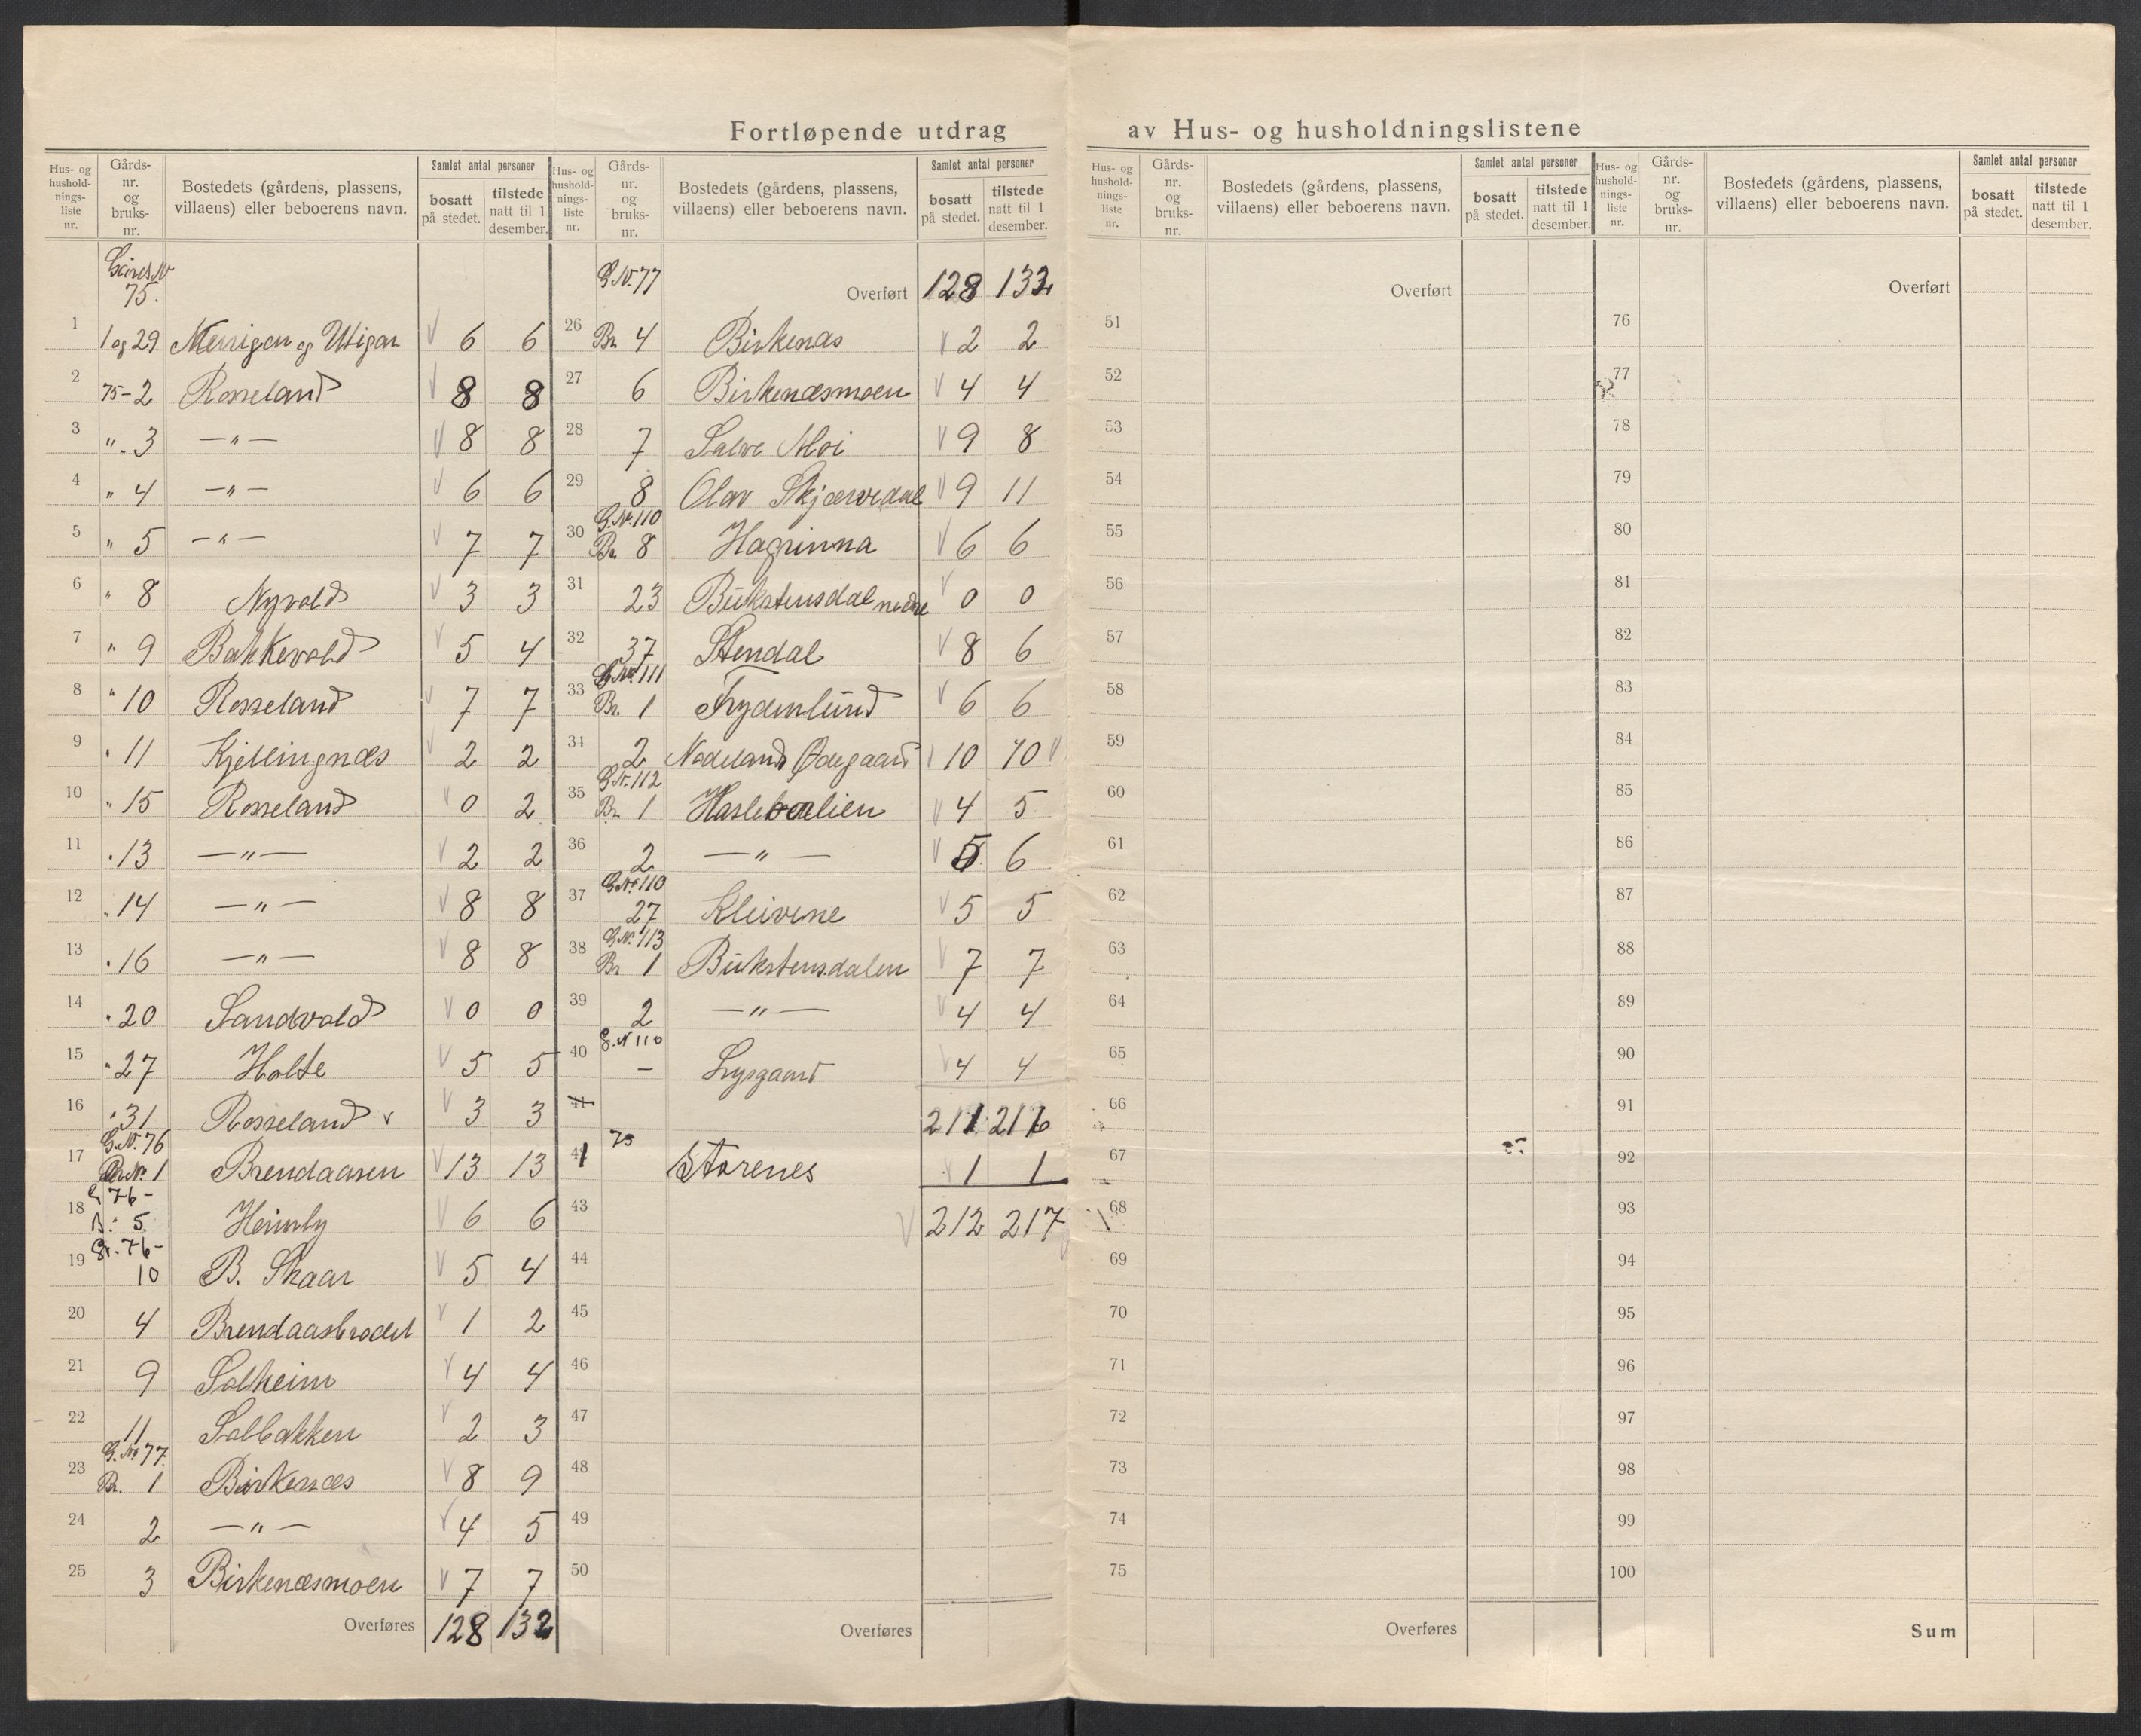 Fortløpende utdrag av Hus- og husholdningslistene
Hus- og husholdnings-liste nr. | Gårds-nr. og bruks-nr. | Bostedets (gårdens, plassens, villaens) eller beboerens navn. | Samlet antal personer | bosatt på stedet. | tilstede natt til 1 desember.
Gårds N 75.
1 | 1 og 29 | og Utigar | 6 | 6
2 | 75-2 | Rosseland | 8 | 8
3 | " 3 | — " — | 8 | 8
4 | " 4 | — " — | 6 | 6
5 | " 5 | — " — | 7 | 7
6 | " 8 | Nyvold | 3 | 3
7 | " 9 | Bakkevold | 5 | 4
8 | " 10 | Rosseland | 7 | 7
9 | " 11 | Kjellingnæs | 2 | 2
10 | " 15 | Rosseland | 0 | 2
11 | " 13 | — " — | 2 | 2
12 | " 14 | — " — | 8 | 8
13 | " 16 | — " — | 8 | 8
14 | " 20 | Sandvold | 0 | 0
15 | " 27 | Holte | 5 | 5
16 | " 31 | Rosseland v | 3 | 3
G.N. 76
17 | Br.N. 1 | Brendaasen | 13 | 13
G 76-
18 | B: 5 | Heimly | 6 | 6
Gr. 76-
19 | 10 | B. Skaar | 5 | 4
20 | 4 | Brendaasbrodet | 1 | 2
21 | 9 | Solheim | 4 | 4
22 | 11 | Solbakken | 2 | 3
G. No 77.
23 | Br. 1 | Birkenæs | 8 | 9
24 | 2 | — " — | 4 | 5
25 | 3 | Birkenæsmoen | 7 | 7
Overføres | 128 | 132
Hus- og husholdnings-liste nr. | Gårds-nr. og bruks-nr. | Bostedets (gårdens, plassens, villaens) eller beboerens navn. | Samlet antal personer | bosatt på stedet. | tilstede natt til 1 desember.
G N. 77 | Overført | 128 | 132
26 | Br. 4 | Birkenæs | 2 | 2
27 | 6 | Birkenæsmoen | 4 | 4
28 | 7 | Salve Moi | 9 | 8
29 | 8 | Olav Skjævedal | 9 | 11
G. Nr. 110
30 | Br. 8 | Hagrinna | 6 | 6
31 | 23 | Bukstensdal nedre | 0 | 0
32 | 37 | Stendal | 8 | 6
G No. 111
33 | Br. 1 | Frydenlund | 6 | 6
34 | 2 | Nodeland Ødegaard | 10 | 10
G Nr. 112
35 | Br. 1 | Haslebaalien | 4 | 5
36 | 2 | — " — | 5 | 6
G No. 110
37 | 27 | Kleivene | 5 | 5
G N. 113
38 | Br 1 | Bukstensdalen | 7 | 7
39 | 2 | — " — | 4 | 4
G. N 110
40 | - | Lysgaard | 4 | 4
41 | 211 | 216
41 | 75 | Storenes | 1 | 1
43 | 212 | 217
44
45
46
47
48
49
50
Overføres
Hus- og husholdnings-liste nr. | Gårds-nr. og bruks-nr. | Bostedets (gårdens, plassens, villaens) eller beboerens navn. | Samlet antal personer | bosatt på stedet. | tilstede natt til 1 desember.
Overført
51
52
53
54
55
56
57
58
59
60
61
62
63
64
65
66
67
68
69
70
71
72
73
74
75
Overføres
Hus- og husholdnings-liste nr. | Gårds-nr. og bruks-nr. | Bostedets (gårdens, plassens, villaens) eller beboerens navn. | Samlet antal personer | bosatt på stedet. | tilstede natt til 1 desember.
Overført
76
77
78
79
80
81
82
83
84
85
86
87
88
89
90
91
92
93
94
95
96
97
98
99
100
Sum